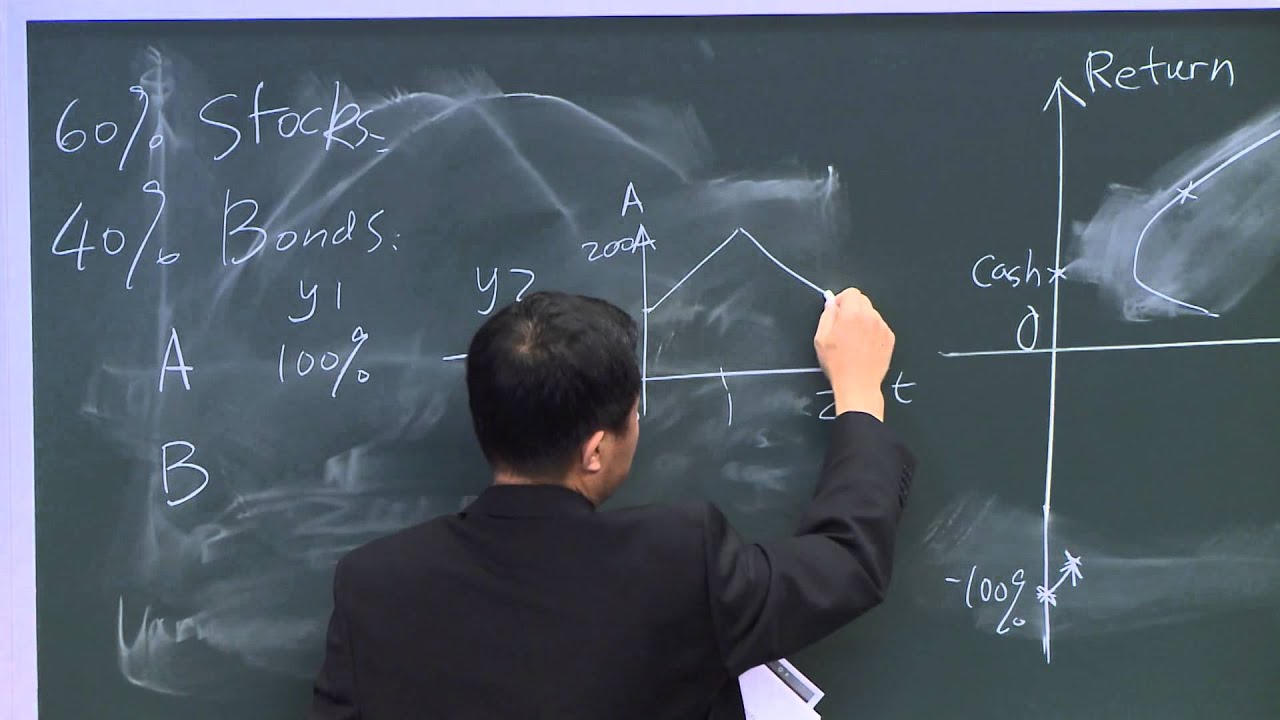 60% Stocks:
40% Bonds:
y1 y2
A 100% -
B
A
200
1 2 t
Return
Cash
0
-100%